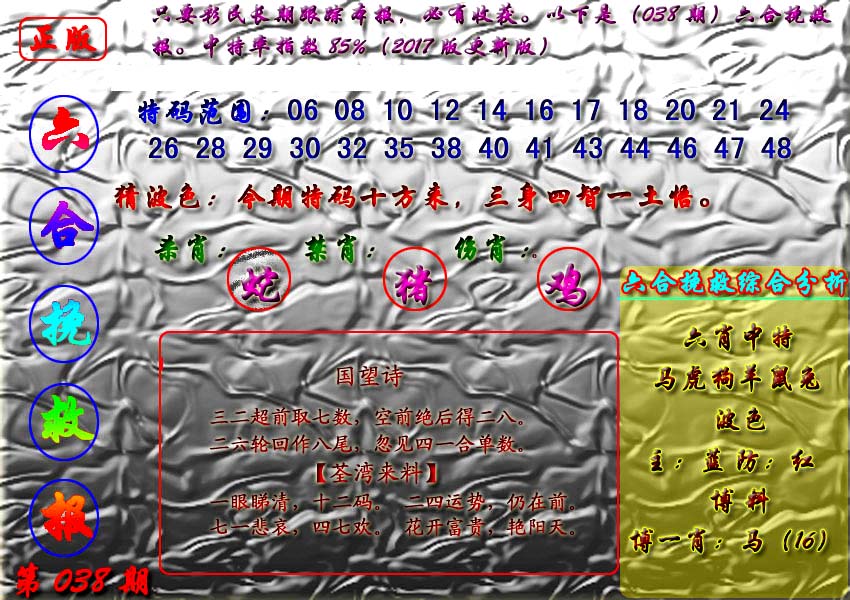 正版
只要彩民长期跟踪本报，必有收获。以下是（038期）六合挽救
报。中特率指数85%（2017版更新版）
六合挽救报
第038期
特码范围：06 08 10 12 14 16 17 18 20 21 24
26 28 29 30 32 35 38 40 41 43 44 46 47 48
猜波色：今期特码十方来，三身四智一土悟。
杀肖：蛇 禁肖：猪 伤肖：鸡
国望诗
三二超前取七数，空前绝后得二八。
二六轮回作八尾，忽见四一合单数。
【荃湾来料】
一眼睇清，十二码。 二四运势，仍在前。
七一悲哀，四七欢。 花开富贵，艳阳天。
六合挽救综合分析
六肖中特
马虎狗羊鼠兔
波色
主：蓝防：红
博料
博一肖：马（16）